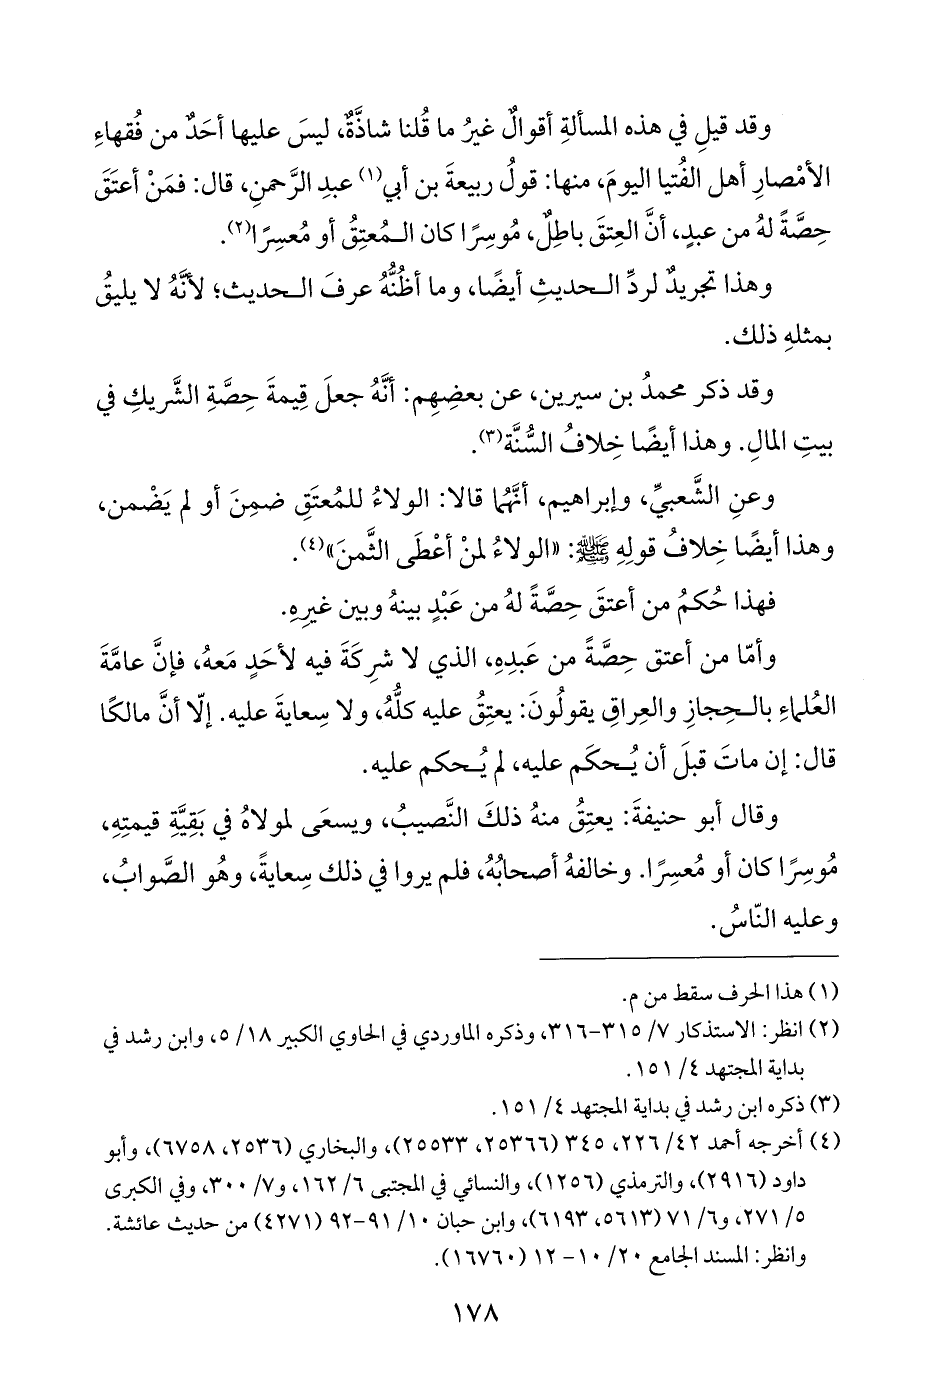 وقد قيل في هذه المسألةِ أقوالٌ غيرُ ما قُلنا شاذَّةٌ، ليسَ عليها أحَدٌ من فُقهاءِ
الأمْصارِ أهل الفُتيا اليومَ، منها: قولُ ربيعةَ بن أبي(١) عبدِ الرَّحمنِ، قال: فمَنْ أعتَقَ
حِصَّةً لهُ من عبدٍ، أنَّ العِتقَ باطِلٌ، مُوسِرًا كان الـمُعتِقُ أو مُعسِرًا(٢).
وهذا تجريدٌ لردِّ الـحديثِ أيضًا، وما أظُنُّهُ عرفَ الـحديث؛ لأنَّهُ لا يليقُ
بمثلهِ ذلك.
وقد ذكر محمدُ بن سيرين، عن بعضِهِم: أنَّهُ جعلَ قِيمةَ حِصَّةِ الشَّريكِ في
بيتِ المالِ. وهذا أيضًا خِلافُ السُّنَّة(٣).
وعنِ الشَّعبيِّ، وإبراهيم، أنَّهُما قالا: الولاءُ للمُعتَقِ ضمِنَ أو لم يَضْمن،
وهذا أيضًا خِلافُ قولِهِ ﷺ: «الولاءُ لمنْ أعْطَى الثَّمنَ»(٤).
فهذا حُكمُ من أعتقَ حِصَّةً لهُ من عَبْدٍ بينهُ وبين غيرِهِ.
وأمّا من أعتق حِصَّةً من عَبدِهِ، الذي لا شرِكَةَ فيه لأحَدٍ مَعهُ، فإنَّ عامَّةَ
العُلماءِ بالـحِجازِ والعِراقِ يقولُونَ: يعتِقُ عليه كلُّهُ، ولا سِعايةَ عليه. إلّا أنَّ مالكًا
قال: إن ماتَ قبلَ أن يُـحكَم عليه، لم يُـحكم عليه.
وقال أبو حنيفةَ: يعتِقُ منهُ ذلكَ النَّصيبُ، ويسعَى لمولاهُ في بَقِيَّةِ قيمتِهِ،
مُوسِرًا كان أو مُعسِرًا. وخالفهُ أصحابُهُ، فلم يروا في ذلك سِعايةً، وهُو الصَّوابُ،
وعليه النّاسُ.
(١) هذا الحرف سقط من م.
(٢) انظر: الاستذكار ٧/ ٣١٥-٣١٦، وذكره الماوردي في الحاوي الكبير ١٨/ ٥، وابن رشد في
بداية المجتهد ٤/ ١٥١.
(٣) ذكره ابن رشد في بداية المجتهد ٤/ ١٥١.
(٤) أخرجه أحمد ٤٢/ ٢٢٦، ٣٤٥ (٢٥٣٦٦، ٢٥٥٣٣)، والبخاري (٢٥٣٦، ٦٧٥٨)، وأبو
داود (٢٩١٦)، والترمذي (١٢٥٦)، والنسائي في المجتبى ٦/ ١٦٢، و٧/ ٣٠٠، وفي الكبرى
٥/ ٢٧١، و٦/ ٧١ (٥٦١٣، ٦١٩٣)، وابن حبان ١٠/ ٩١-٩٢ (٤٢٧١) من حديث عائشة.
وانظر: المسند الجامع ٢٠/ ١٠- ١٢ (١٦٧٦٠).
١٧٨